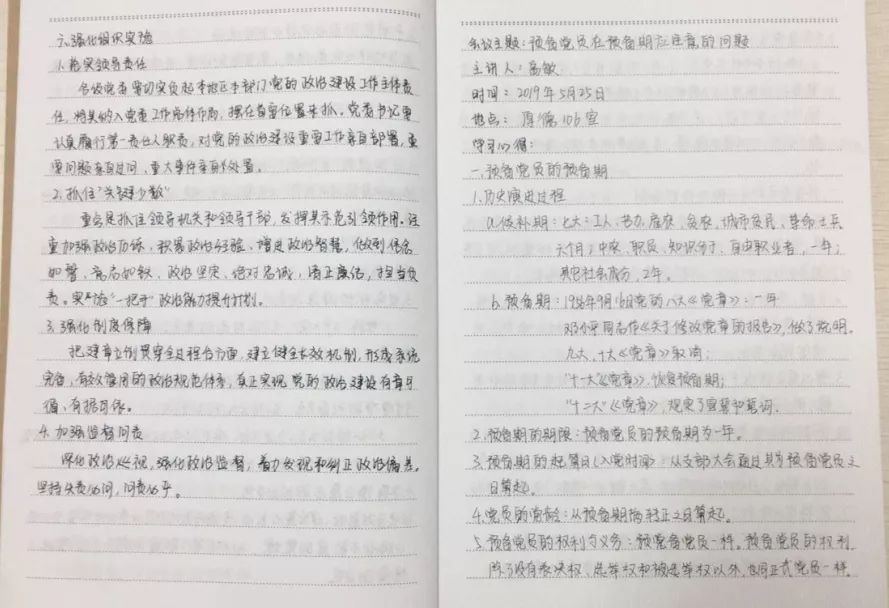 六、强化组织实施
1.落实领导责任
各级党委要切实负起本地区本部门党的政治建设工作主体责
任,将其纳入党委工作总体布局,摆在首要位置来抓。党委书记要
认真履行第一责任人职责,对党的政治建设重要工作亲自部署,重
要问题亲自过问,重大事件亲自处置。
2.抓住"关键少数"
重点是抓住领导机关和领导干部,发挥其示范引领作用。注
重加强政治历练,积累政治经验,增进政治智慧,做到信念
如磐、意志如铁、政治坚定、绝对忠诚,清正廉洁,担当负
责。实施"一把手"政治能力提升计划。
3.强化制度保障
把建章立制贯穿全过程各方面,建立健全长效机制,形成系统
完备,有效管用的政治规范体系,真正实现党的政治建设有章可
循、有据可依。
4.加强监督问责
深化政治巡视,强化政治监督,着力发现和纠正政治偏差。
坚持失责必问,问责必严。
会议主题:预备党员在预备期应注意的问题
主讲人:高敏
时间:2019年5月25日
地点:厚德106室
学习心得:
一.预备党员的预备期
1.历史演进过程
a.候补期:七大:工人、苦力、雇农、贫农、城市贫民、革命士兵
六个月;中农、职员、知识分子、自由职业者,一年;
其它社会成分,2年。
b.预备期:1956年9月 党的八大《党章》:一年
邓小平同志作《关于修改党章的报告》,做了说明。
九大、十大《党章》取消;
"十一大"《党章》,恢复预备期;
"十二大"《党章》,规定了宣誓和誓词.
2.预备期的期限:预备党员的预备期为一年。
3.预备期的起算日(入党时间):从支部大会通过其为预备党员之
日算起。
4.党员的党龄:从预备期满转正之日算起。
5.预备党员的权利与义务:预备党员一样。预备党员的权利
除了没有表决权、选举权和被选举权以外,也同正式党员一样。